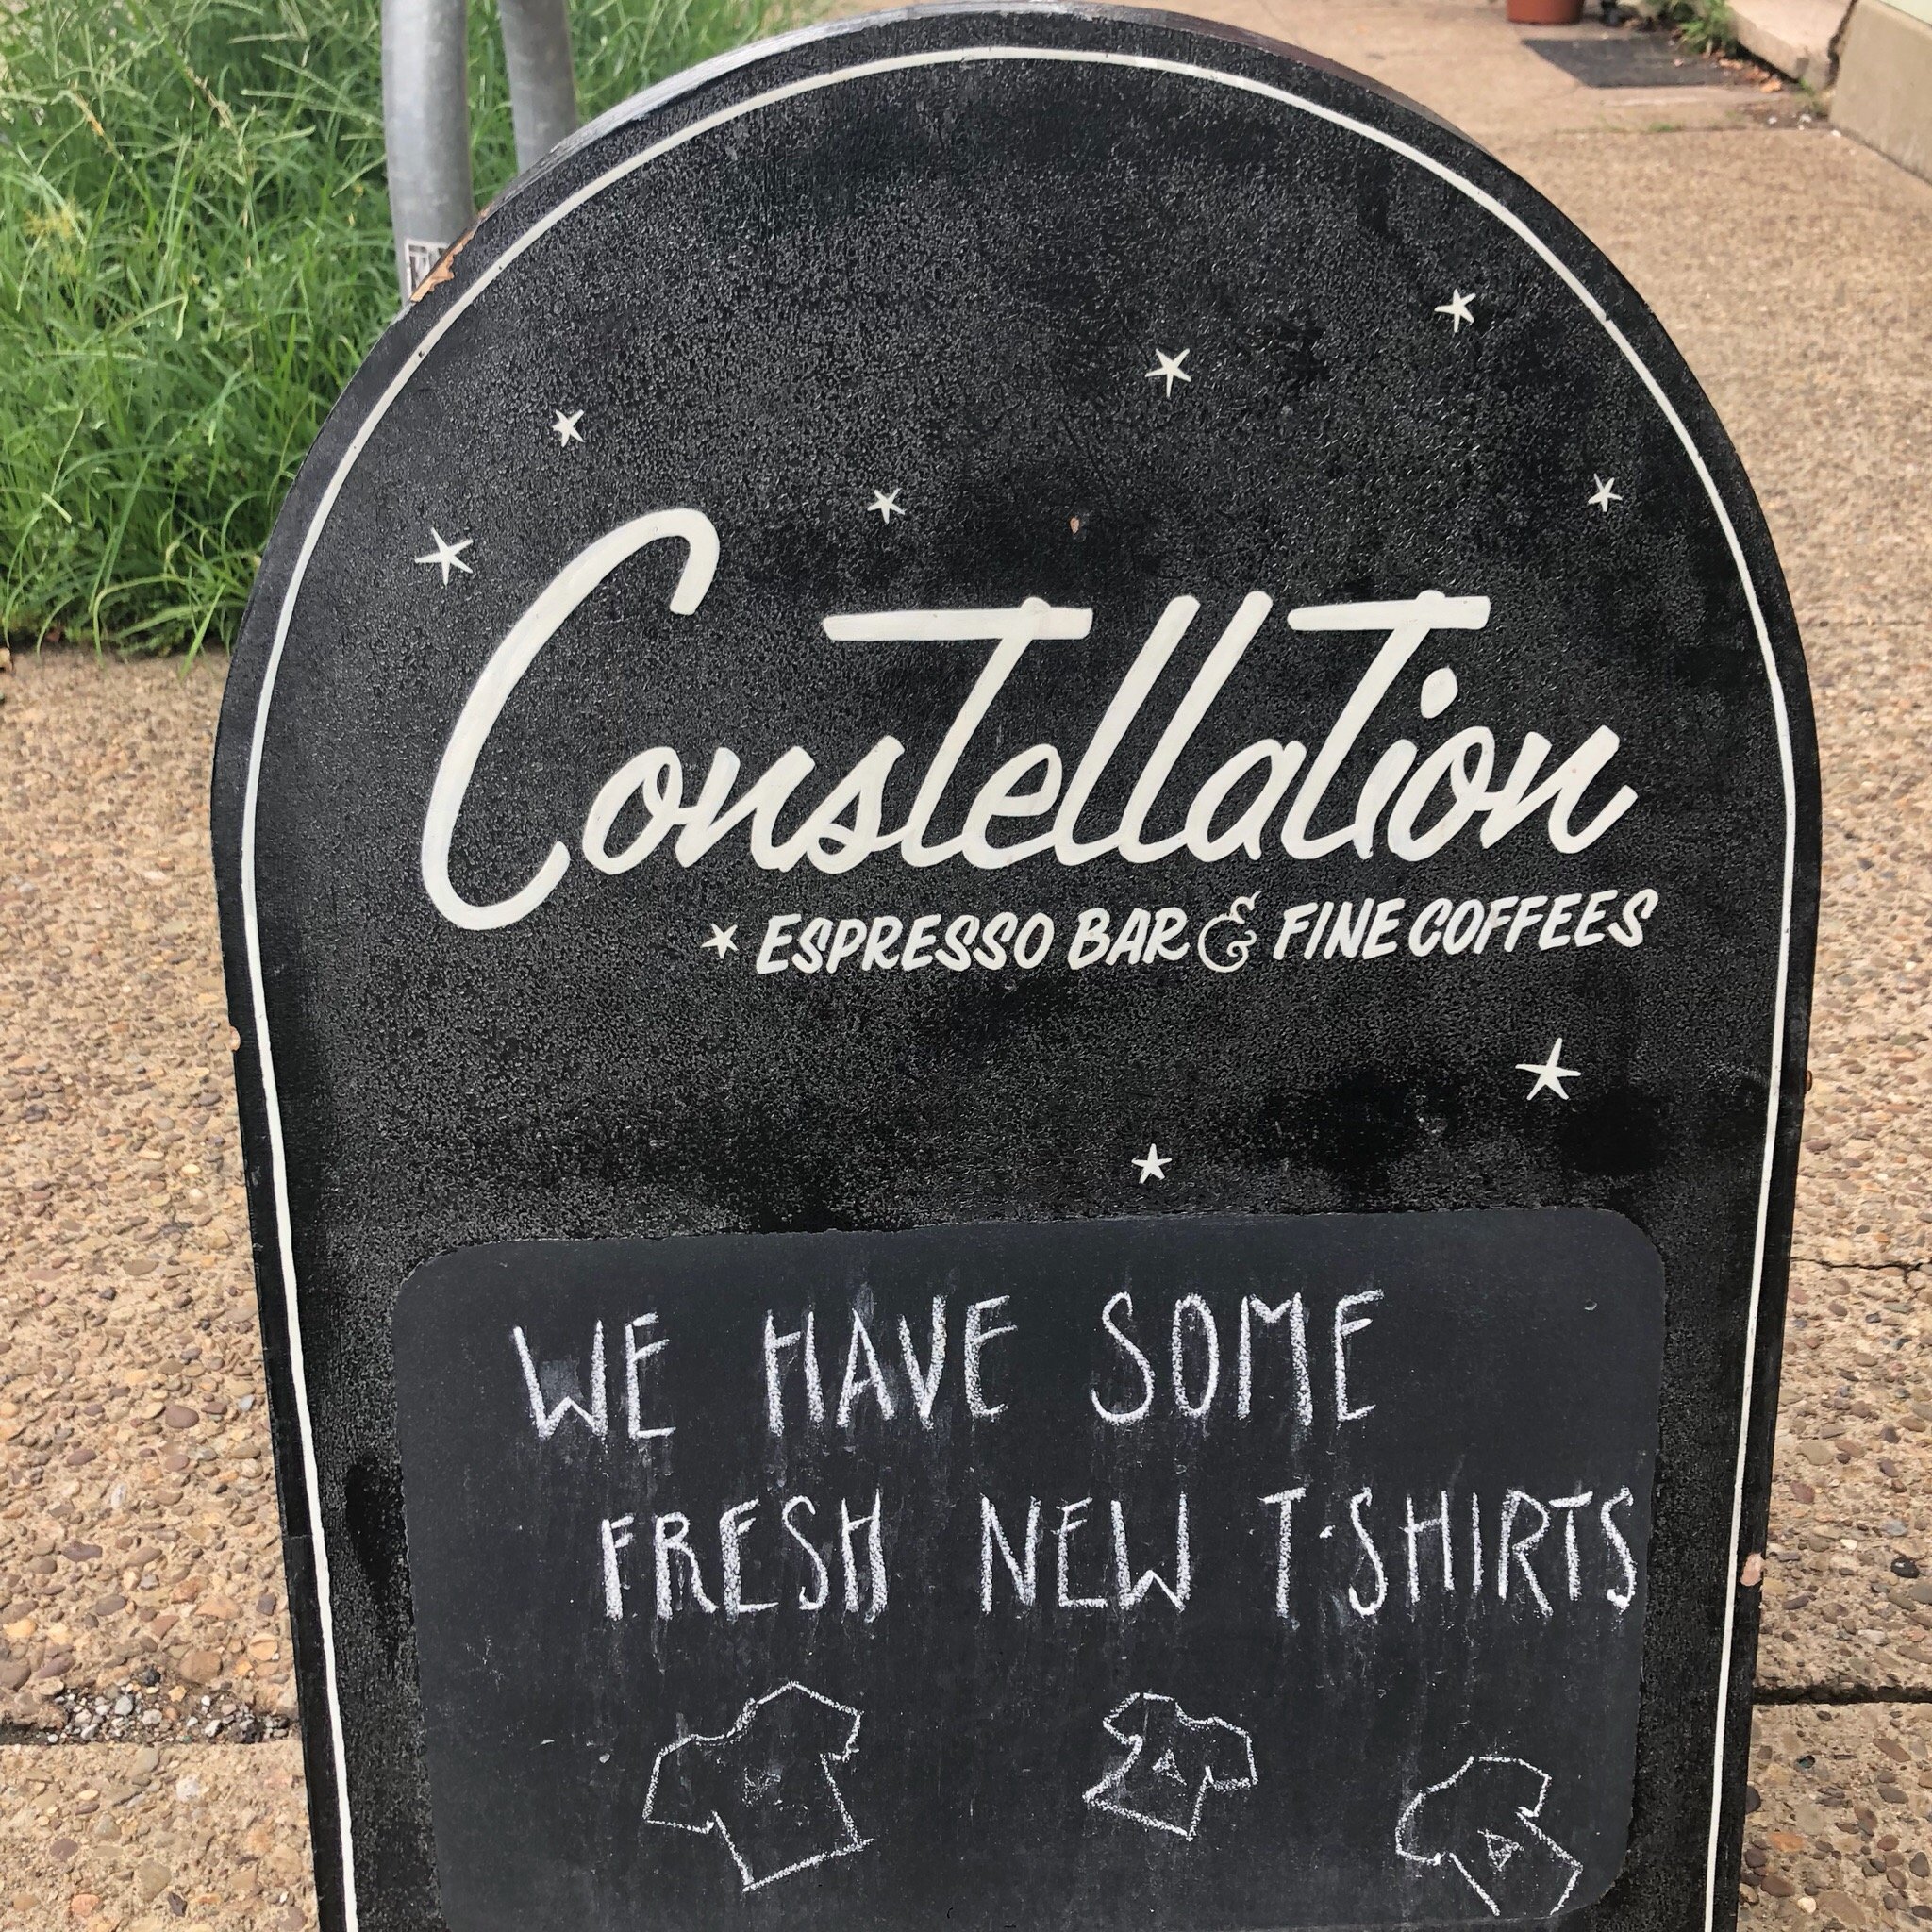 Constellation
ESPRESSO BAR & FINE COFFEES
WE HAVE SOME
FRESH NEW T-SHIRTS